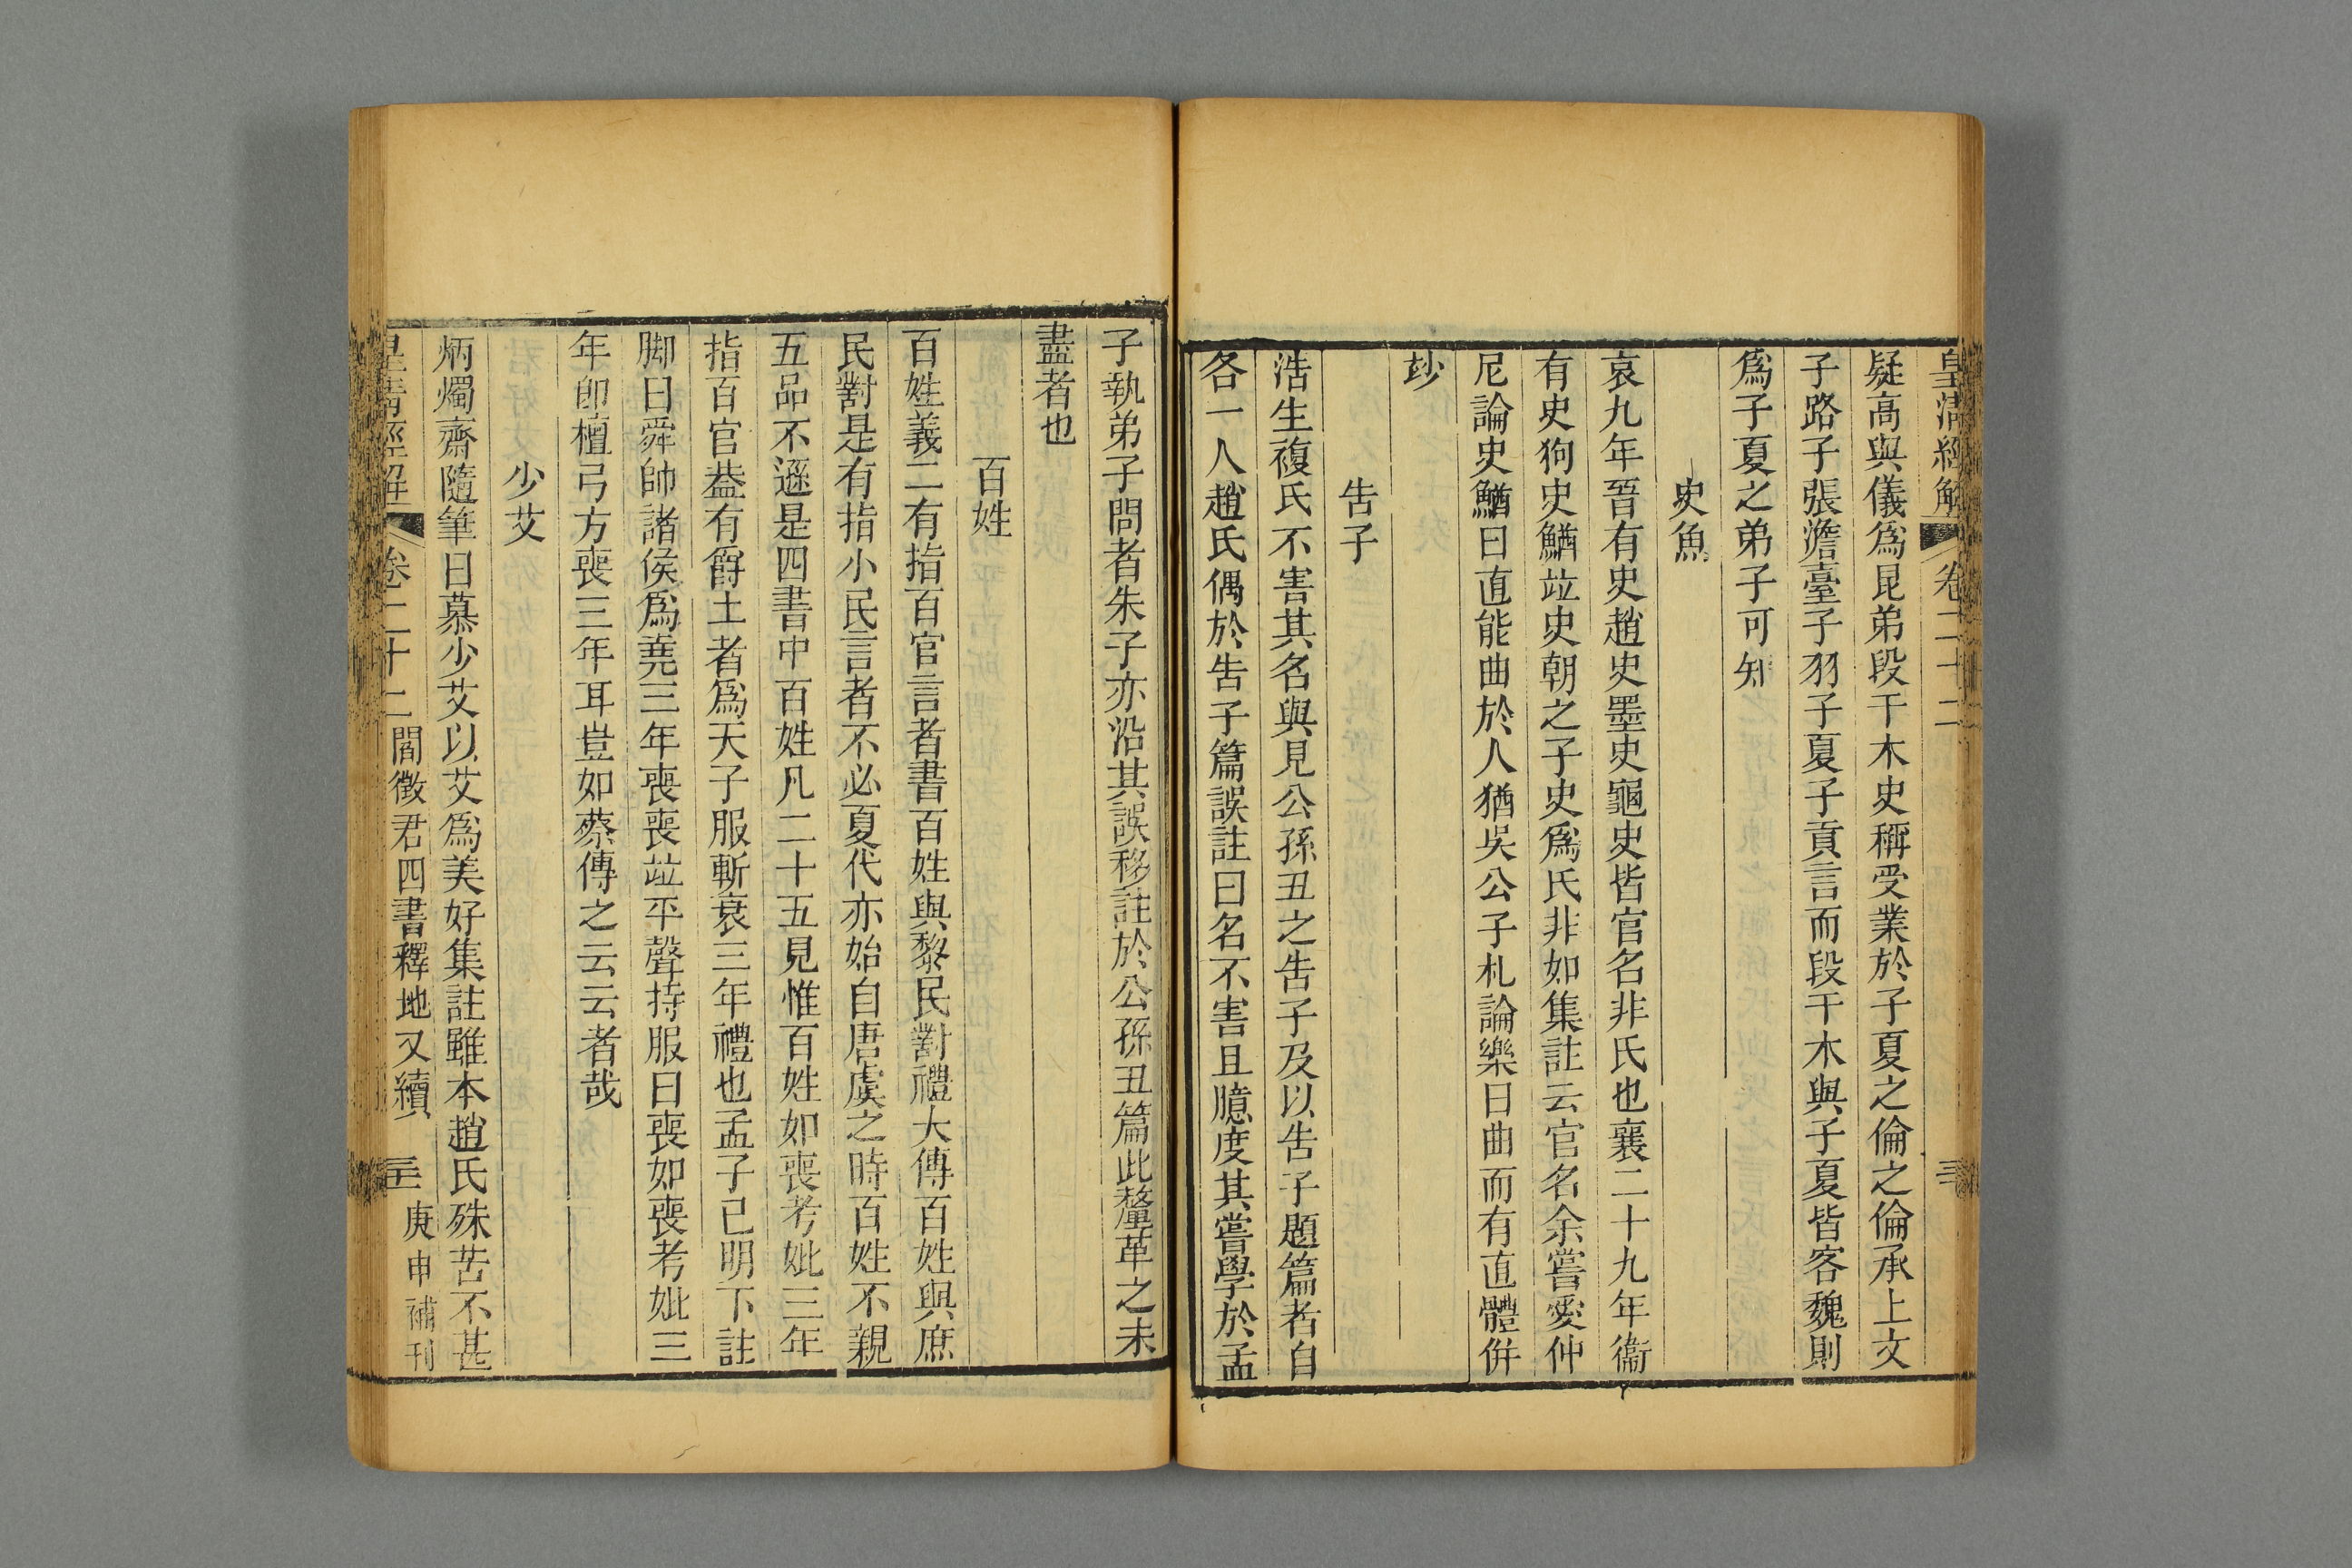 皇清經解 卷二十二
疑高與儀爲昆弟段干木史稱受業於子夏之倫之倫承上文
子路子張澹臺子羽子夏子貢言而段干木與子夏皆客魏則
爲子夏之弟子可知
史魚
哀九年晉有史趙史墨史龜史皆官名非氏也襄二十九年衞
有史狗史鰌竝史朝之子史爲氏非如集註云官名余嘗愛仲
尼論史鰌曰直能曲於人猶吳公子札論樂曰曲而有直體併
玅
告子
浩生複氏不害其名與見公孫丑之告子及以告子題篇者自
各一人趙氏偶於告子篇誤註曰名不害且臆度其嘗學於孟
子執弟子問者朱子亦沿其誤移註於公孫丑篇此釐革之未
盡者也
百姓
百姓義二有指百官言者書百姓與黎民對禮大傳百姓與庶
民對是有指小民言者不必夏代亦始自唐虞之時百姓不親
五品不遜是四書中百姓凡二十五見惟百姓如喪考妣三年
指百官葢有爵土者爲天子服斬衰三年禮也孟子已明下註
脚曰舜帥諸侯爲堯三年喪喪竝平聲持服曰喪如喪考妣三
年卽檀弓方喪三年耳豈如蔡傳之云云者哉
少艾
炳燭齋隨筆曰慕少艾以艾爲美好集註雖本趙氏殊苦不甚
皇清經解 卷二十二 閻徵君四書釋地又續 庚申補刊